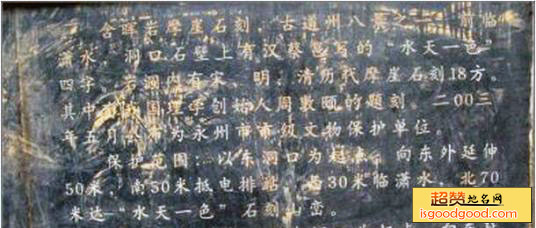 含晖岩摩崖石刻，古道州八景之一，前临
潇水，洞口石壁上有汉蔡邕写的“水天一色”
四字。岩洞内有宋、明、清历代摩崖石刻18方。
其中有我国理学创始人周敦颐的题刻。二00三
年五月公布为永州市市级文物保护单位。
保护范围：以东洞口为起点，向东外延伸
50米，南50米抵电排站，西30米临潇水，北70
米达“水天一色”石刻山峦。
超赞地名网
isgoodgood.com